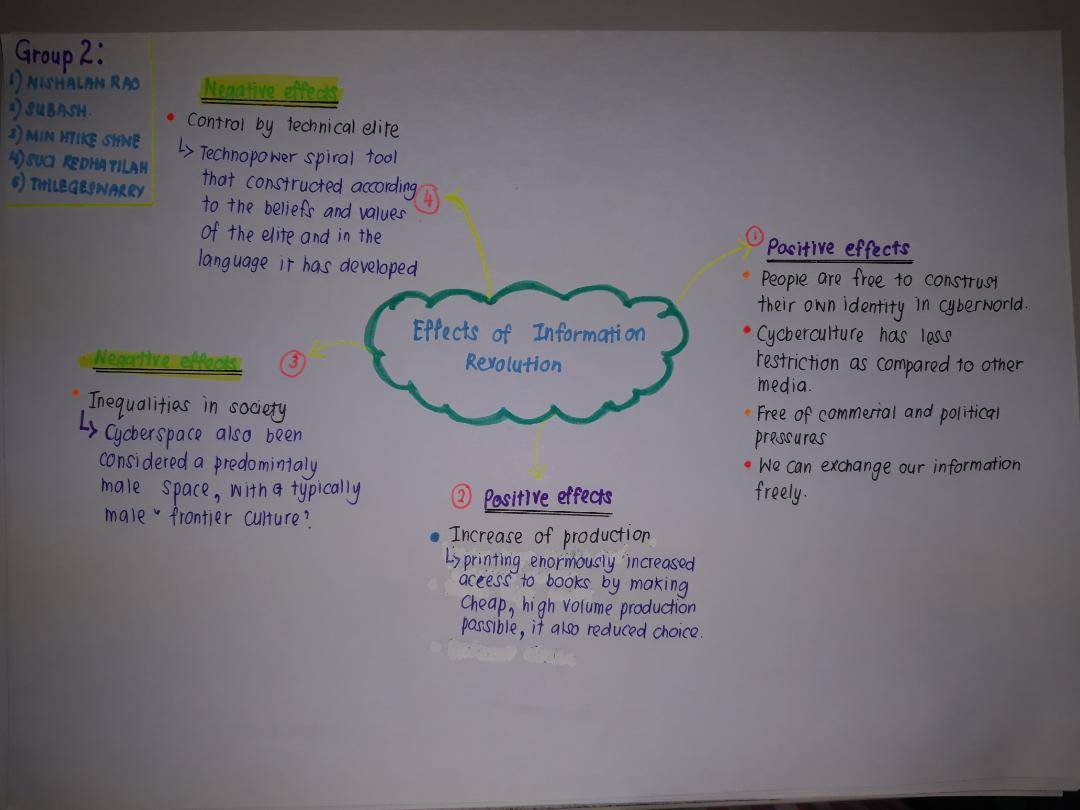 Group 2:
1) NISHALAN RAO
2) SUBASH.
3) MIN HTIKE SHNE
4) SUCI REDHATILAH
5) THILEGESWARRY
Negative effects
• Control by technical elite
↳ Technopower spiral tool
that constructed according
to the beliefs and values
of the elite and in the
language it has developed
4
1
Positive effects
• People are free to construst
their own identity in cyberworld.
• Cycberculture has less
restriction as compared to other
media.
• Free of commerial and political
pressures
• We can exchange our information
freely.
Effects of Information
Revolution
Negative effects
3
• Inequalities in society
↳ Cycberspace also been
considered a predomintaly
male space, with a typically
male "frontier culture".
2 Positive effects
• Increase of production
↳ printing enormously increased
access to books by making
Cheap, high volume production
possible, it also reduced choice.